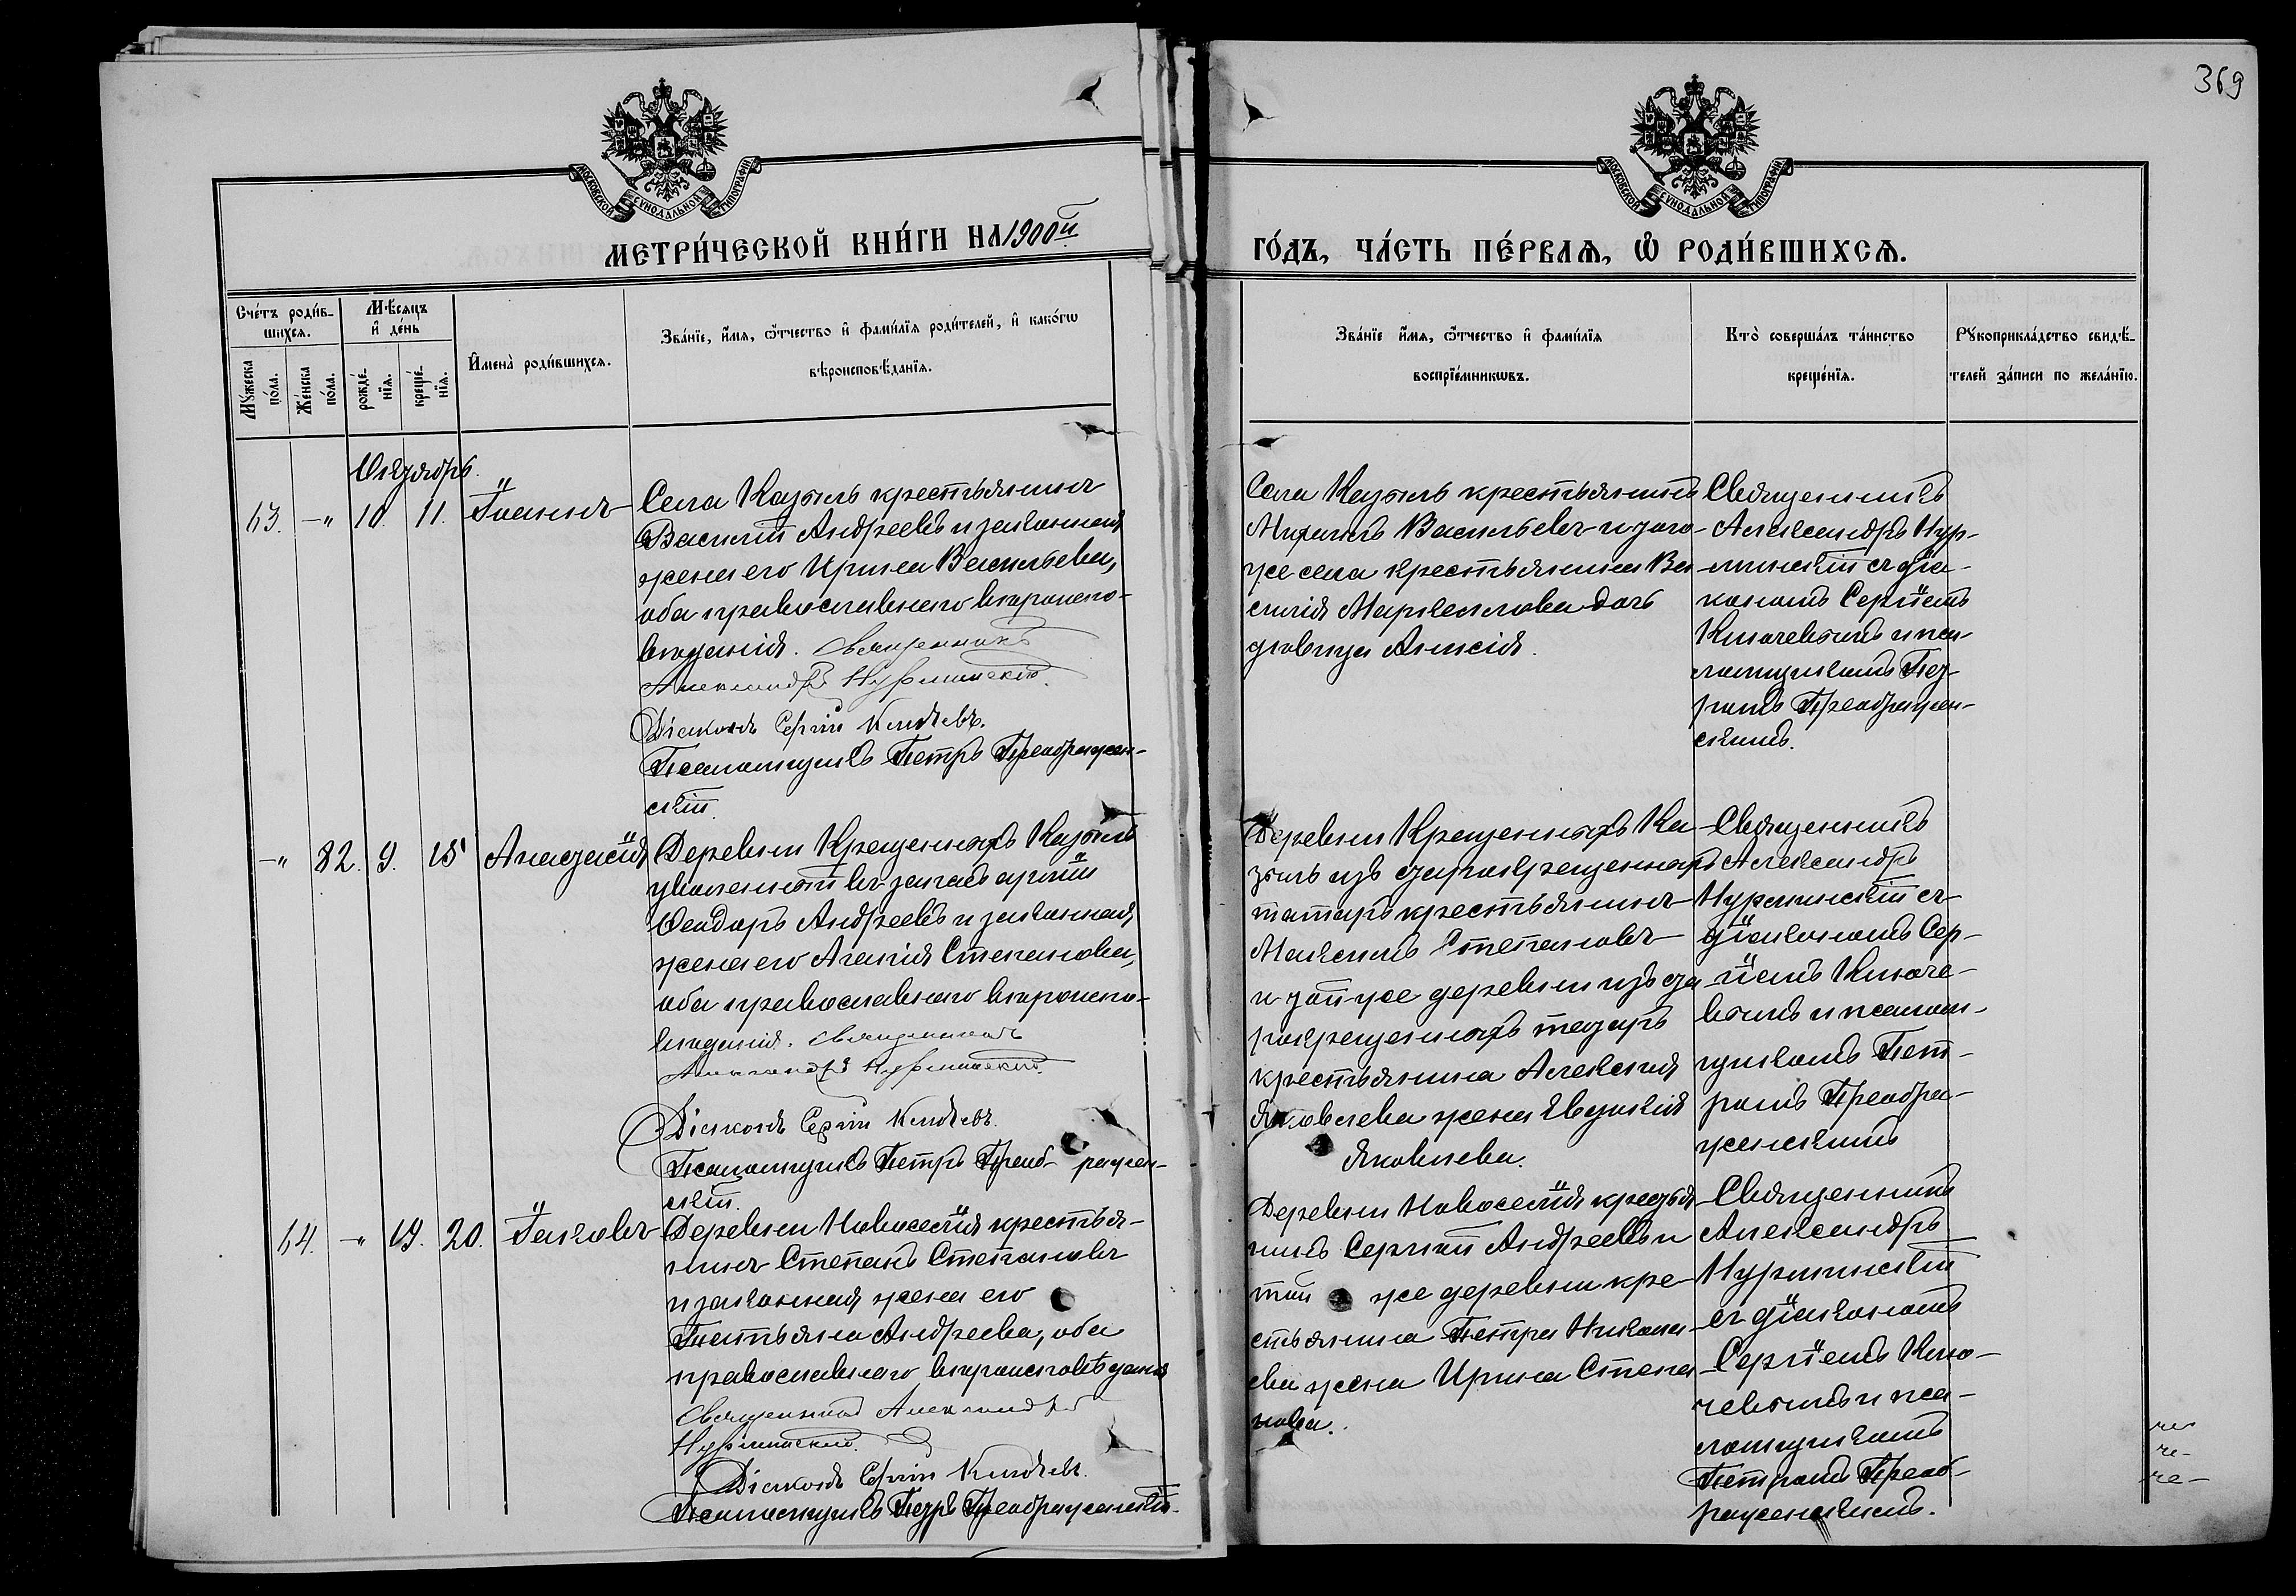 369
МОСКОВСКОЙ СѴНОДАЛЬНОЙ ТИПОГРАФІИ
МОСКОВСКОЙ СѴНОДАЛЬНОЙ ТИПОГРАФІИ
МЕТРИ́ЧЕСКОЙ КНИ́ГИ НА 1900й
ГО́ДЪ, ЧА́СТЬ ПЕ́РВАѦ, Ѡ҆ РОДИ́ВШИХСѦ.
Сче́тъ роди́в-
шихсѧ.
Мꙋ́жеска по́ла.
Же́нска по́ла.
Мѣ́сѧцъ
и҆ де́нь
рожде́-нїѧ.
креще́-нїѧ.
И҆мена̀ роди́вшихсѧ.
Зва́нїе, и҆́мѧ, ѻ҆́тчество и҆ фами́лїѧ роди́телей, и҆ како́гѡ
вѣроисповѣ́данїѧ.
Зва́нїе и҆́мѧ, ѻ҆́тчество и҆ фами́лїѧ
воспрїе́мникѡвъ.
Кто̀ соверша́лъ та́инство
креще́нїѧ.
Рꙋкоприкла́дство свидѣ́-
телей за́писи по жела́нїю.
Октябрь.
63. -„ 10. 11. Іоаннъ
Села Казыль крестьянинъ
Василій Андреевъ и законная
жена его Ирина Васильева,
оба православнаго вѣроиспо-
вѣданія. Священникъ
Александръ Нурминскій.
Діаконъ Сергій Ключевъ.
Псаломщикъ Петръ Преображен-
скій.
Села Казыль крестьянинъ
Михаилъ Васильевъ и того-
же села крестьянина Ва
силія Маркеллова дочь
дѣвица Анисія.
Священникъ
Александръ Нур-
минскій съ діа-
кономъ Сергіемъ
Ключевымъ и пса-
ломщикомъ Пет-
ромъ Преображен-
скимъ.
-„ 82. 9. 15 Анастасія
Деревни Крещеныхъ Казыль
уволенный въ запасъ арміи
Ѳеодоръ Андреевъ и законная
жена его Агапія Степанова,
оба православнаго вѣроиспо-
вѣданія. Священникъ
Александръ Нурминскій.
Діаконъ Сергій Ключевъ.
Псаломщикъ Петръ Преоб- ражен-
скій.
Деревни Крещеныхъ Ка
зыль изъ старокрещеныхъ
татаръ крестьянинъ
Максимъ Степановъ
и той-же деревни изъ ста
рокрещеныхъ татаръ
крестьянина Алексія
Яковлева жена Евдокія
Яковлева.
Священникъ
Александръ
Нурминскій съ
діакономъ Сер-
гіемъ Ключе-
вымъ и псалом-
щикомъ Пет-
ромъ Преобра-
женскимъ
64. -„ 19. 20. Іаковъ
Деревни Новоселія крестья-
нинъ Степанъ Степановъ
и законная жена его
Татьяна Андреева, оба
православнаго вѣроисповѣданія
Священникъ Александръ
Нурминскій.
Діаконъ Сергій Ключевъ.
Псаломщикъ Петръ Преображенскій.
Деревни Новоселія крестья
нинъ Сергій Андреевъ и
той же деревни кре
стьянина Петра Никола
ева жена Ирина Степа
нова.
Священникъ
Александръ
Нурминскій
съ діакономъ
Сергіемъ Клю-
чевымъ и пса-
ломщикомъ
Петромъ Преоб-
раженскимъ.